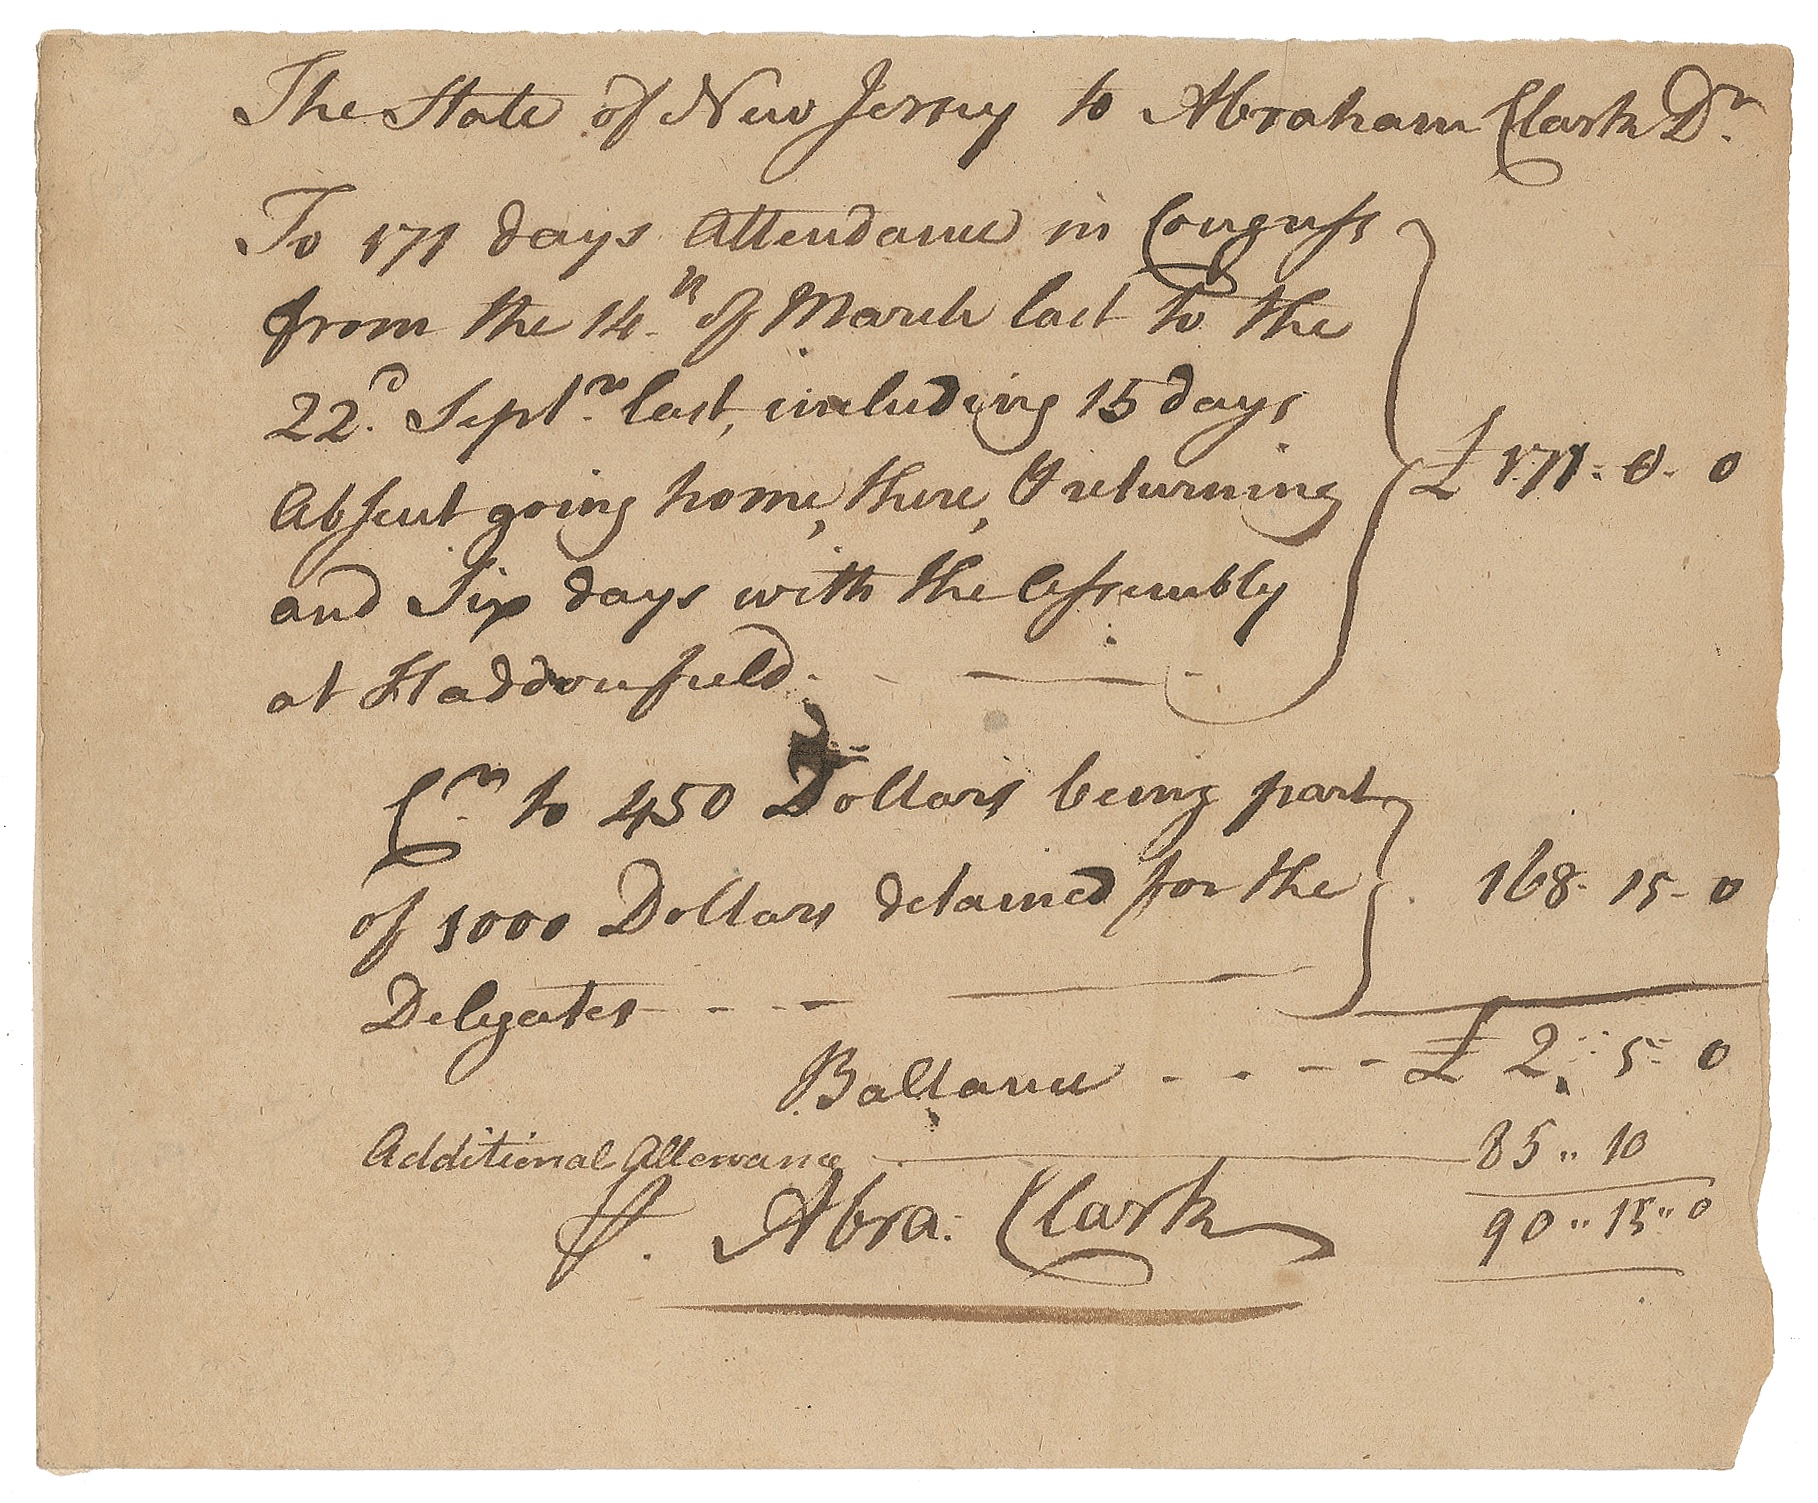 The State of New Jersey to Abraham Clark Dr.
To 171 days Attendance in Congress
from the 14th of March last to the
22d. Septr. last, including 15 days
Absent going home, there, & returning
and Six days with the Assembly
at Haddonfield. - — - £ 171 - 0 - 0
Cr. to 450 Dollars being part
of 1000 Dollars detained for the
Delegates - - - — 168 - 15 - 0
Ballance - - - - £ 2 : 5 - 0
Additional Allowance — 85 " 10
P. Abra: Clark
90 " 15 " 0